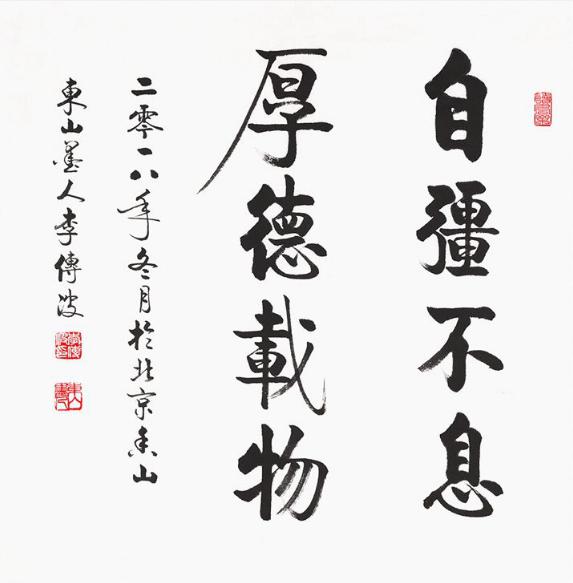 自彊不息
厚德載物
二零一八年冬月於北京香山
東山墨人李傳波